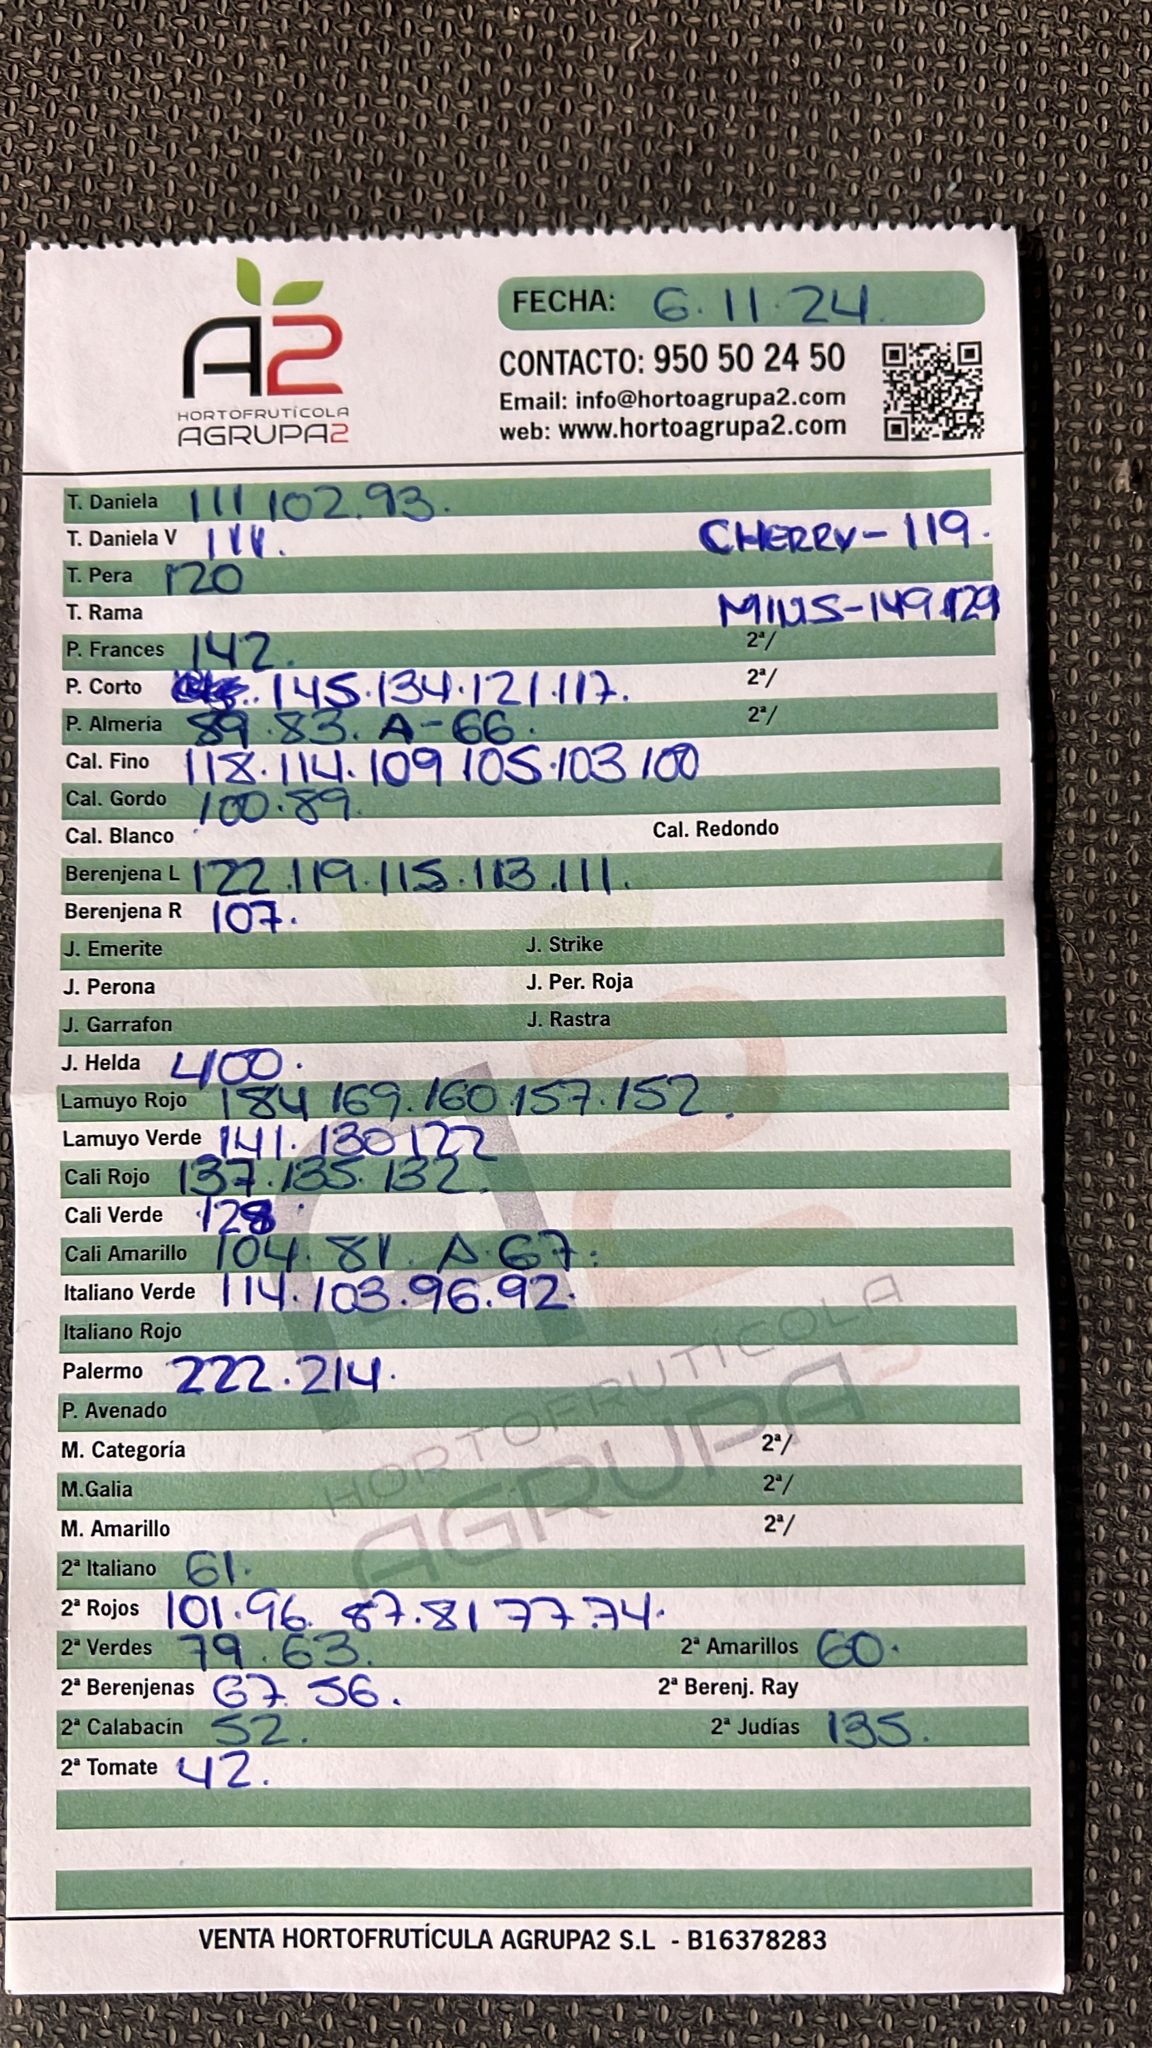 A2
HORTOFRUTÍCOLA
AGRUPA2
FECHA: 6.11.24.
CONTACTO: 950 50 24 50
Email: info@hortoagrupa2.com
web: www.hortoagrupa2.com
T. Daniela 111 102.93.
T. Daniela V 111. CHERRY-119.
T. Pera 120
T. Rama MINIS-149.129
P. Frances 142. 2ª/
P. Corto 145.134.121.117. 2ª/
P. Almería 89.83. A-66. 2ª/
Cal. Fino 118.114.109 105.103 100
Cal. Gordo 100.89.
Cal. Blanco Cal. Redondo
Berenjena L 122.119.115.113.111.
Berenjena R 107.
J. Emerite J. Strike
J. Perona J. Per. Roja
J. Garrafon J. Rastra
J. Helda 400.
Lamuyo Rojo 184 169.160.157.152.
Lamuyo Verde 141.130 122
Cali Rojo 137.135.132.
Cali Verde 128.
Cali Amarillo 104.81. A.67.
Italiano Verde 114.103.96.92.
Italiano Rojo
Palermo 222.214.
P. Avenado
M. Categoría 2ª/
M.Galia 2ª/
M. Amarillo 2ª/
2ª Italiano 61.
2ª Rojos 101.96. 87.81 77.74.
2ª Verdes 79.63. 2ª Amarillos 60.
2ª Berenjenas 67 56. 2ª Berenj. Ray
2ª Calabacín 52. 2ª Judías 135.
2ª Tomate 42.
HORTOFRUTÍCOLA
AGRUPA2
VENTA HORTOFRUTÍCULA AGRUPA2 S.L - B16378283